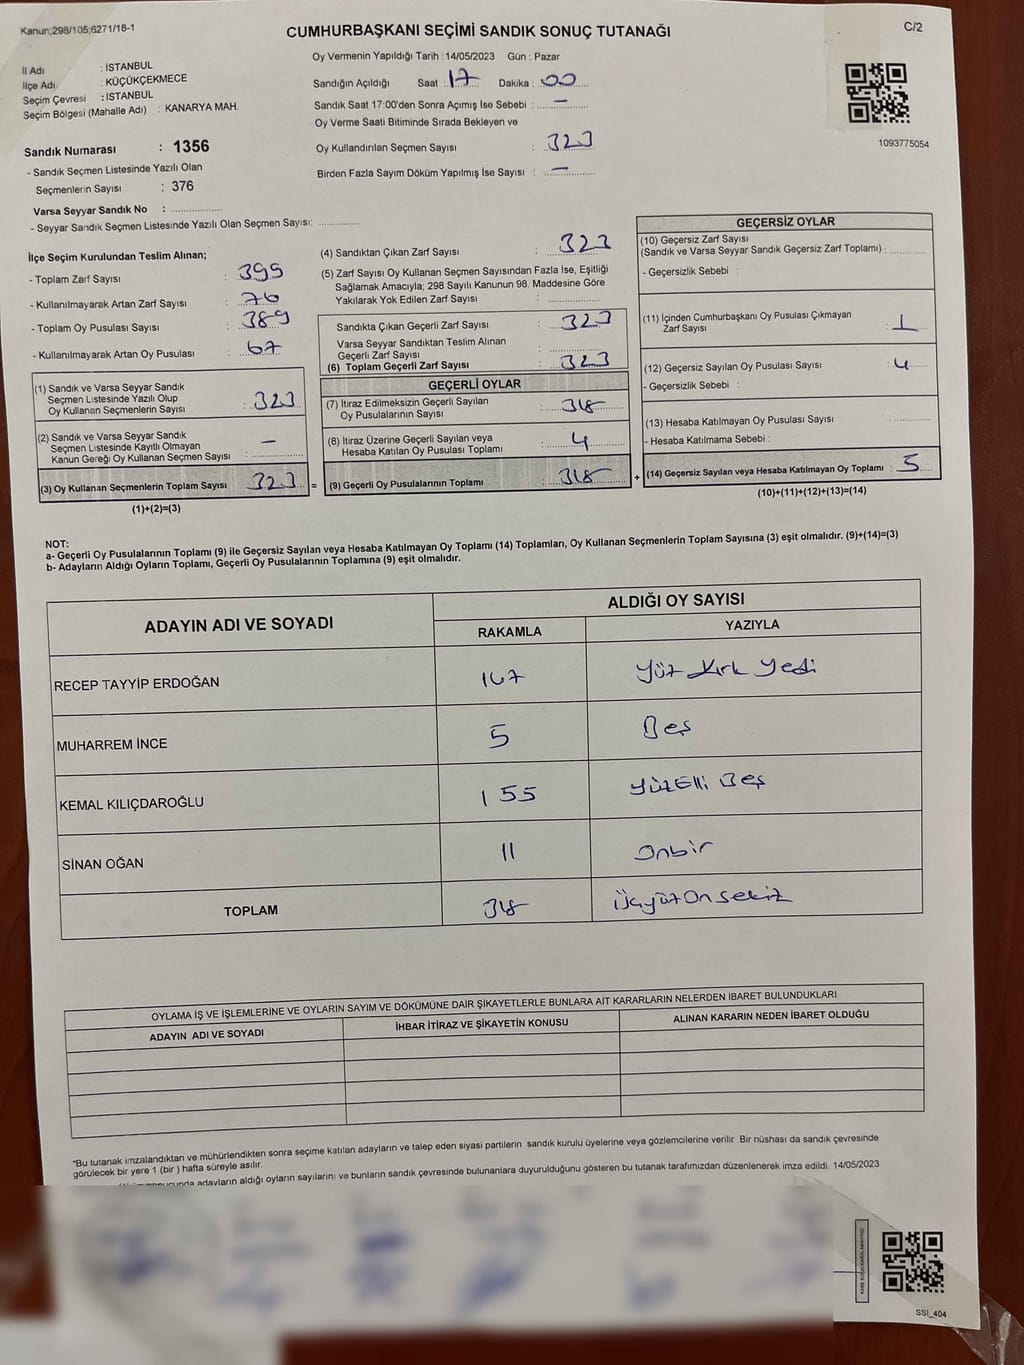 Kanun;298/105;6271/16-1
CUMHURBAŞKANI SEÇİMİ SANDIK SONUÇ TUTANAĞI
C/2
Oy Vermenin Yapıldığı Tarih : 14/05/2023 Gün : Pazar
İl Adı : İSTANBUL
İlçe Adı : KÜÇÜKÇEKMECE
Seçim Çevresi : İSTANBUL
Seçim Bölgesi (Mahalle Adı) : KANARYA MAH.
Sandığın Açıldığı Saat : 17 Dakika : 00
Sandık Saat 17:00'den Sonra Açımış İse Sebebi : —
Oy Verme Saati Bitiminde Sırada Bekleyen ve
Oy Kullandırılan Seçmen Sayısı : 323
Birden Fazla Sayım Döküm Yapılmış İse Sayısı : —
1093775054
Sandık Numarası : 1356
- Sandık Seçmen Listesinde Yazılı Olan
Seçmenlerin Sayısı : 376
Varsa Seyyar Sandık No : ....................
- Seyyar Sandık Seçmen Listesinde Yazılı Olan Seçmen Sayısı: ..............
İlçe Seçim Kurulundan Teslim Alınan;
- Toplam Zarf Sayısı : 399
- Kullanılmayarak Artan Zarf Sayısı : 76
- Toplam Oy Pusulası Sayısı : 389
- Kullanılmayarak Artan Oy Pusulası : 67
(1) Sandık ve Varsa Seyyar Sandık
Seçmen Listesinde Yazılı Olup
Oy Kullanan Seçmenlerin Sayısı : 323
(2) Sandık ve Varsa Seyyar Sandık
Seçmen Listesinde Kayıtlı Olmayan
Kanun Gereği Oy Kullanan Seçmen Sayısı : —
(3) Oy Kullanan Seçmenlerin Toplam Sayısı : 323 =
(1)+(2)=(3)
(4) Sandıktan Çıkan Zarf Sayısı : 323
(5) Zarf Sayısı Oy Kullanan Seçmen Sayısından Fazla İse, Eşitliği
Sağlamak Amacıyla; 298 Sayılı Kanunun 98. Maddesine Göre
Yakılarak Yok Edilen Zarf Sayısı : ..............
Sandıkta Çıkan Geçerli Zarf Sayısı : 323
Varsa Seyyar Sandıktan Teslim Alınan
Geçerli Zarf Sayısı : ..............
(6) Toplam Geçerli Zarf Sayısı : 323
GEÇERLİ OYLAR
(7) İtiraz Edilmeksizin Geçerli Sayılan
Oy Pusulalarının Sayısı : 318
(8) İtiraz Üzerine Geçerli Sayılan veya
Hesaba Katılan Oy Pusulası Toplamı : 4
(9) Geçerli Oy Pusulalarının Toplamı : 318 +
GEÇERSİZ OYLAR
(10) Geçersiz Zarf Sayısı
(Sandık ve Varsa Seyyar Sandık Geçersiz Zarf Toplamı) : ..............
- Geçersizlik Sebebi :
(11) İçinden Cumhurbaşkanı Oy Pusulası Çıkmayan
Zarf Sayısı : 1
(12) Geçersiz Sayılan Oy Pusulası Sayısı : 4
- Geçersizlik Sebebi :
(13) Hesaba Katılmayan Oy Pusulası Sayısı : ..............
- Hesaba Katılmama Sebebi :
(14) Geçersiz Sayılan veya Hesaba Katılmayan Oy Toplamı : 5
(10)+(11)+(12)+(13)=(14)
NOT:
a- Geçerli Oy Pusulalarının Toplamı (9) ile Geçersiz Sayılan veya Hesaba Katılmayan Oy Toplamı (14) Toplamları, Oy Kullanan Seçmenlerin Toplam Sayısına (3) eşit olmalıdır. (9)+(14)=(3)
b- Adayların Aldığı Oyların Toplamı, Geçerli Oy Pusulalarının Toplamına (9) eşit olmalıdır.
ADAYIN ADI VE SOYADI
ALDIĞI OY SAYISI
RAKAMLA YAZIYLA
RECEP TAYYİP ERDOĞAN 147 Yüz Kırk Yedi
MUHARREM İNCE 5 Beş
KEMAL KILIÇDAROĞLU 155 YüzElli Beş
SİNAN OĞAN 11 Onbir
TOPLAM 318 ÜçyüzOnsekiz
OYLAMA İŞ VE İŞLEMLERİNE VE OYLARIN SAYIM VE DÖKÜMÜNE DAİR ŞİKAYETLERLE BUNLARA AİT KARARLARIN NELERDEN İBARET BULUNDUKLARI
ADAYIN ADI VE SOYADI İHBAR İTİRAZ VE ŞİKAYETİN KONUSU ALINAN KARARIN NEDEN İBARET OLDUĞU
"Bu tutanak imzalandıktan ve mühürlendikten sonra seçime katılan adayların ve talep eden siyasi partilerin sandık kurulu üyelerine veya gözlemcilerine verilir .Bir nüshası da sandık çevresinde
görülecek bir yere 1 (bir ) hafta süreyle asılır.
adayların aldığı oyların sayılarını ve bunların sandık çevresinde bulunanlara duyurulduğunu gösteren bu tutanak tarafımızdan düzenlenerek imza edildi. 14/05/2023
SSI_404